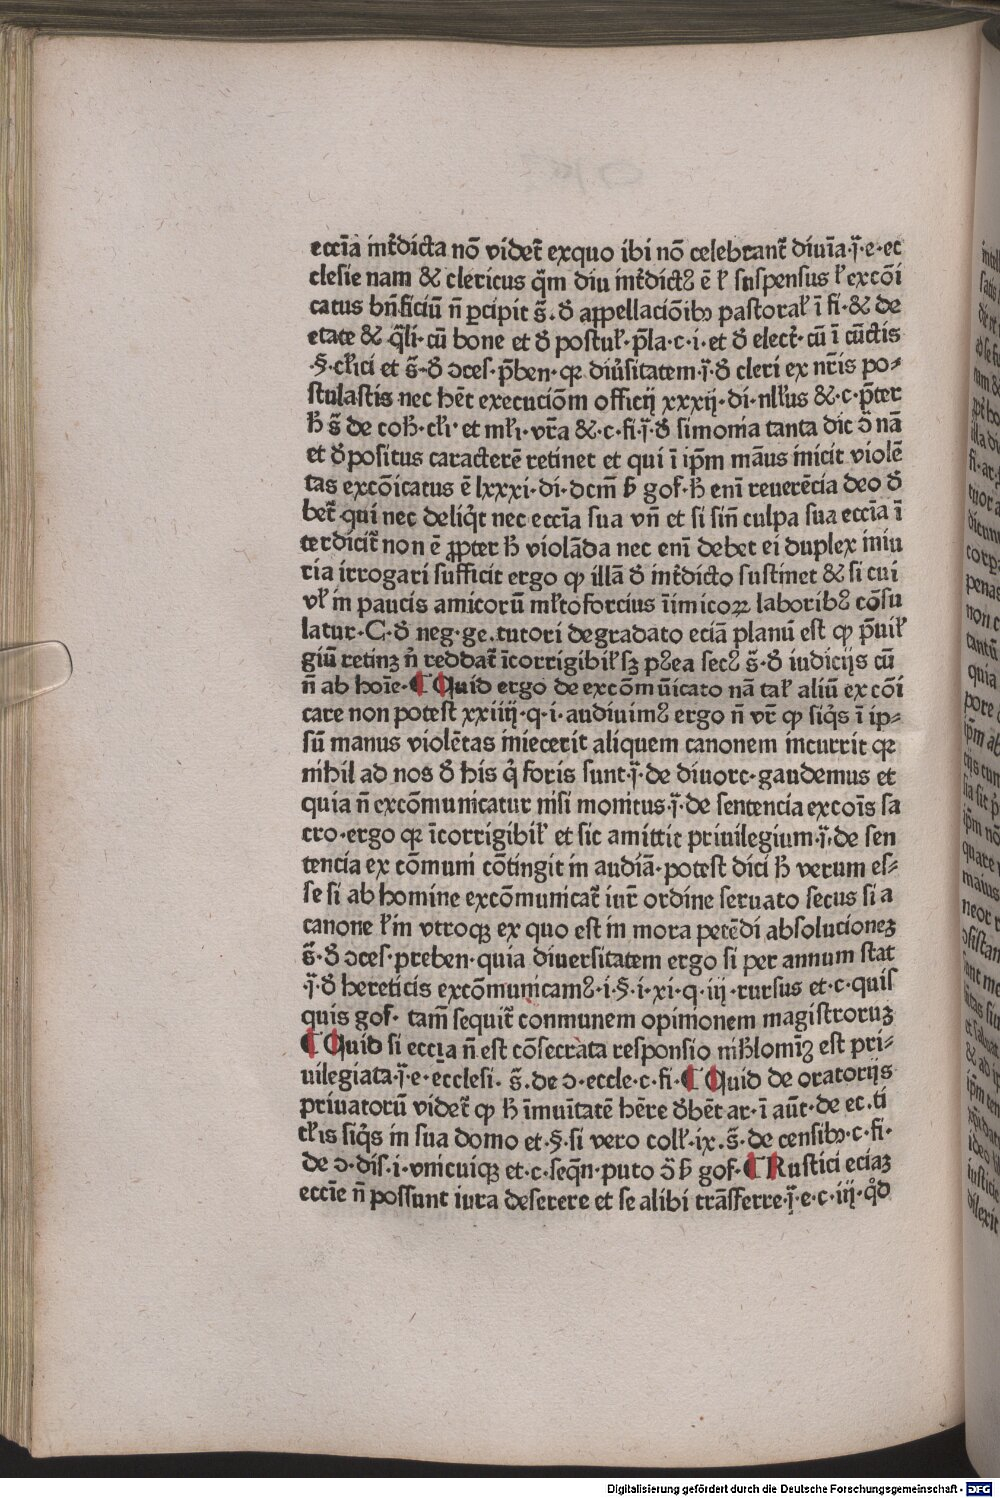 eccīa int̄dicta nō videt̄ exquo ibi nō celebrant̄ diuīa·j̄·e·ec
clesie nam & clericus q̄m diu int̄dictꝰ ē ł suspensus ł excōi
catus bn̄ficiū n̄ ꝑcipit s̄. ð appellaciōibꝫ pastorał ī fi·& de
etate & q̄li·cū bone et ð postuł·p̄la·c·i·et ð elect̄·cū ī cūctis
·§·cłici et s̄·ð ɔces·p̄ben·qꝛ diūsitatem·j̄·ð cleri ex nr̄is po⸗
stulastis nec hēt execuciōm officij xxxij·di·nłłus &·c·p̄ter
ħ s̄ de coħ·cłi· et młi·vr̄a &·c·fi·j̄·ð simonia tanta dic ɔ̄ nā
et ðpositus caracterē retinet et qui ī ip̄m māus inicit violē
tas excōicatus ē lxxxi·di·ɔcm̄ ƀ gof·ħ enī reuerēcia deo ð
bet̄ qui nec deliq̇t nec eccīa sua vn̄ et si sin̄ culpa sua eccīa ī
terdicit̄ non ē ꝓpter ħ violāda nec enī debet ei duplex iniu
ria irrogari sufficit ergo ꝙ illā ð int̄dicto sustinet & si cui
vł in paucis amicorū młtoforcius īimicoꝝ laboribꝰ cōsu
latur·C·ð neg·ge.tutori degradato eciā planū est ꝙ p̄uił
giū retinꝫ n̄ reddat̄ īcorrigibiłsꝫ pꝰea secꝰ s̄·ð iudicijs cū
n̄ ab hoīe·¶ Quid ergo de excōmūicato nā tał aliū excōi
care non potest xxiiij·q·i·audiuimꝰ ergo n̄ vr̄ ꝙ siq̇s ī ip⸗
sū manus violētas iniecerit aliquem canonem incurrit qꝛ
nihil ad nos ð his q̇ foris sunt·j̄·de diuorc·gaudemus et
quia n̄ excōmunicatur nisi monitus·j̄·de sentencia excoīs sa
cro·ergo qꝛ īcorrigibił et sic amittit priuilegium·j̄·de sen
tencia ex cōmuni cōtingit in audiā·potest dici ħ verum es⸗
se si ab homine excōmunicat̄ iur̄ ordine seruato secus si a
canone łin vtroqꝫ ex quo est in mora petēdi absolucioneꝫ
s̄·ð ɔces·preben·quia diuersitatem ergo si per annum stat
·j̄·ð hereticis excōmunicamꝰ·i·§·i·xi·q·iij·rursus et·c·quis
quis gof· tam̄ sequit̄ conmunem opinionem magistroruꝫ
¶ Quid si eccīa n̄ est cōsecrata responsio niħlomīꝫ est pri⸗
uilegiata·j̄·e·ēcclesi· s̄.de ɔ·eccle·c·fi·¶ Quid de oratorijs
priuatorū videt̄ ꝙ ħ īmuītatē hēre ðbēt ar·ī aūt·de ec.ti
cłis siq̇s in sua domo et·§·si vero coll·ix.s̄·de censibꝫ·c·fi·
de ɔ·dis·i·vnicuiqꝫ et·c·seqn̄·puto ɔ̄ ƀ gof·¶ Rustici eciaꝫ
eccīe n̄ possunt iura deserere et se alibi trāsferre·j̄·e·c·iij·q̇d
Digitalisierung gefördert durch die Deutsche Forschungsgemeinschaft · DFG